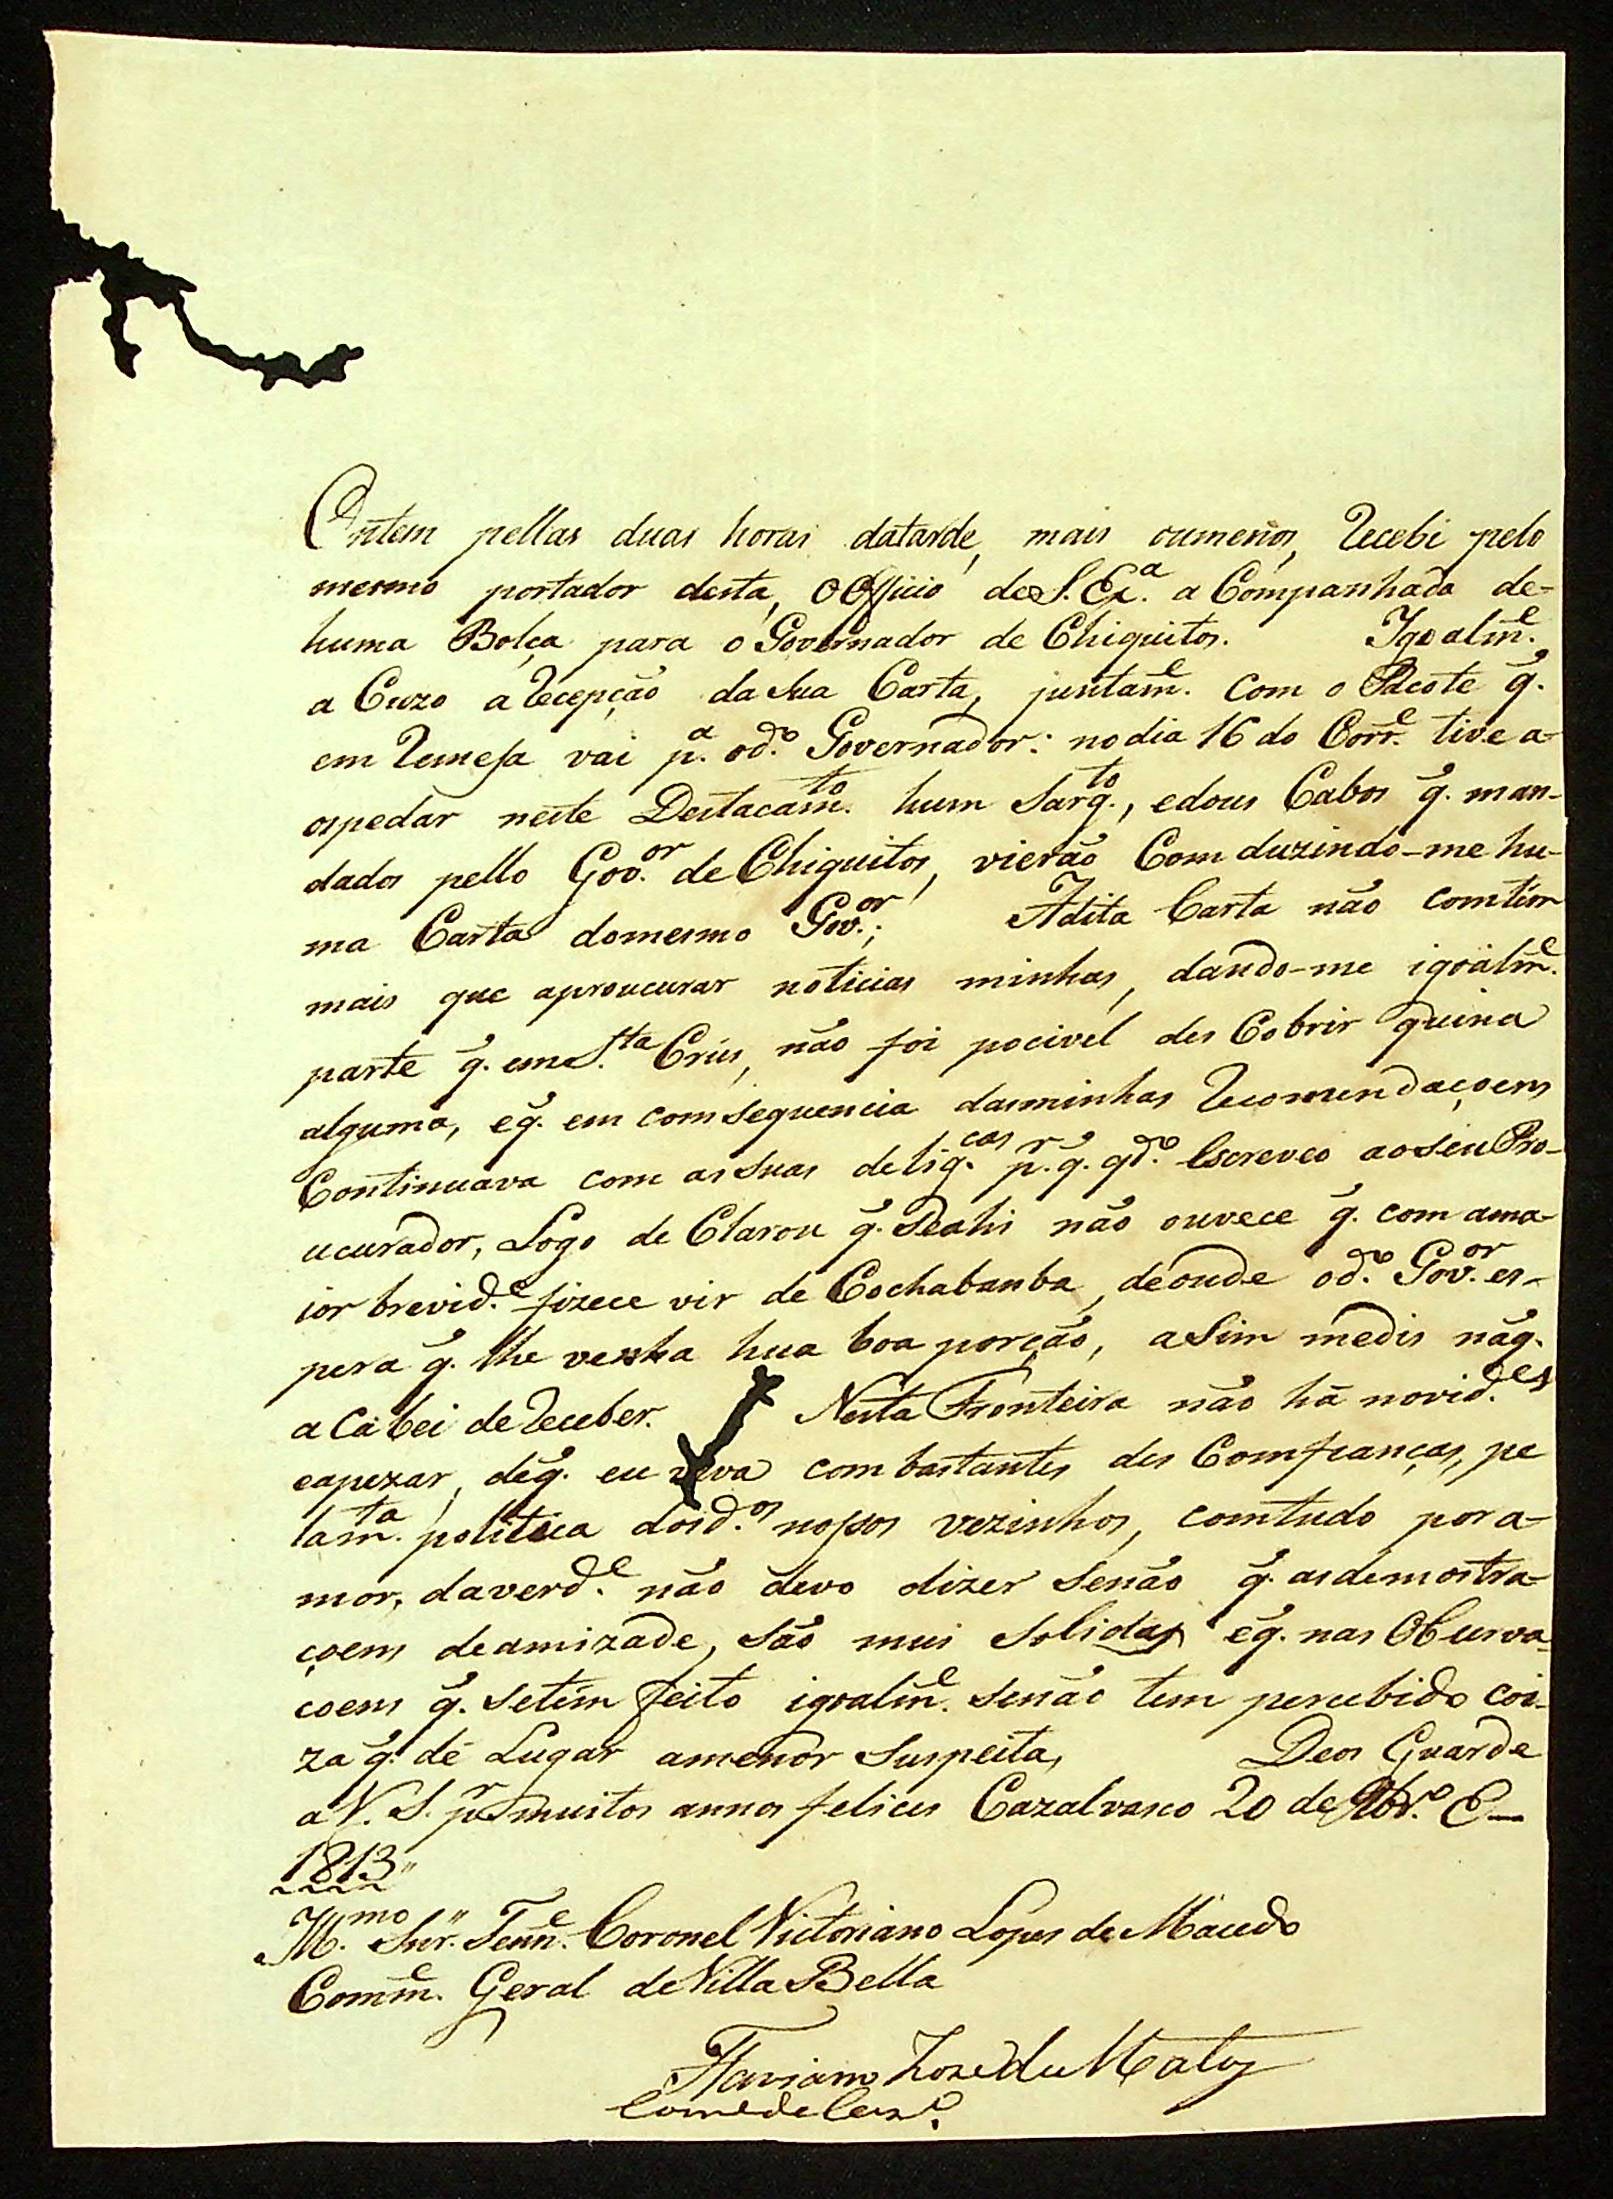 Ontem pellas duas horas datarde, mais oumenos, Recebi pelo
mesmo portador desta, oOfficio de S. Exª. a Companhado de-
huma Bolça para o Governador de Chiquitos. Igoalmᵉ.
a Cuzo a Recepção da sua Carta, juntamᵉ. Com o Pacote q̃.
em Remeſa vai pª. od.º Governador: no dia 16 do Corrᵉ. tive a-
ospedar neste Destacamᵗᵒ. hum Sargᵗᵒ., edous Cabos q̃. man-
dados pello Gov.ᵒʳ de Chiquitos, vierão Com duzindo-me hu-
ma Carta domesmo Gov.ᵒʳ; Adita Carta não comtém
mais que aproucurar noticias minhas, dando-me igoalmᵉ.
parte q̃. em S.ᵗᵃ Crus, não foi pocivel des Cobrir quina
alguma, eq̃. em comsequencia dasminhas Recomendaçoens
Continuava com as suas delig.ᶜᵃˢ p.ʳ q̃. qd.º Escreveo aoseu Pro-
ucurador, Logo de Clarou q̃. Seahi não ouvece q̃. com ama-
ior brevid.ᵉ fizece vir de Cochabanba, deonde od.º Gov.ᵒʳ es-
pera q̃. lhe venha hua boa porção, asim medis nã q̃.
a Cabei de Receber. Nesta Fronteira não há novid.ᵉˢ
eapezar, deq̃. eu viva com bastantes des Comfianças, pe
lamᵗᵃ. politica dosd.ᵒˢ noſsos vezinhos, comtudo por a-
mor, daverd.ᵉ não devo dizer Senão q̃. asdemostra-
çoens deamizade, são mui Solidas eq̃. nas Observa-
coens q̃. setém feito igoalmᵉ. senão tem percebido coi-
za q̃. dé Lugar amenor Suspeita, Deos Guarde
a V. S. pʳ muitos annos felices Cazalvasco 20 de 9br.º E—
1813"
M.ᵐᵒ Snr. Tennᵉ. Coronel Victoriano Lopes de Macedo
Commᵉ. Geral de Villa Bella
Flaviano Joze de Matos